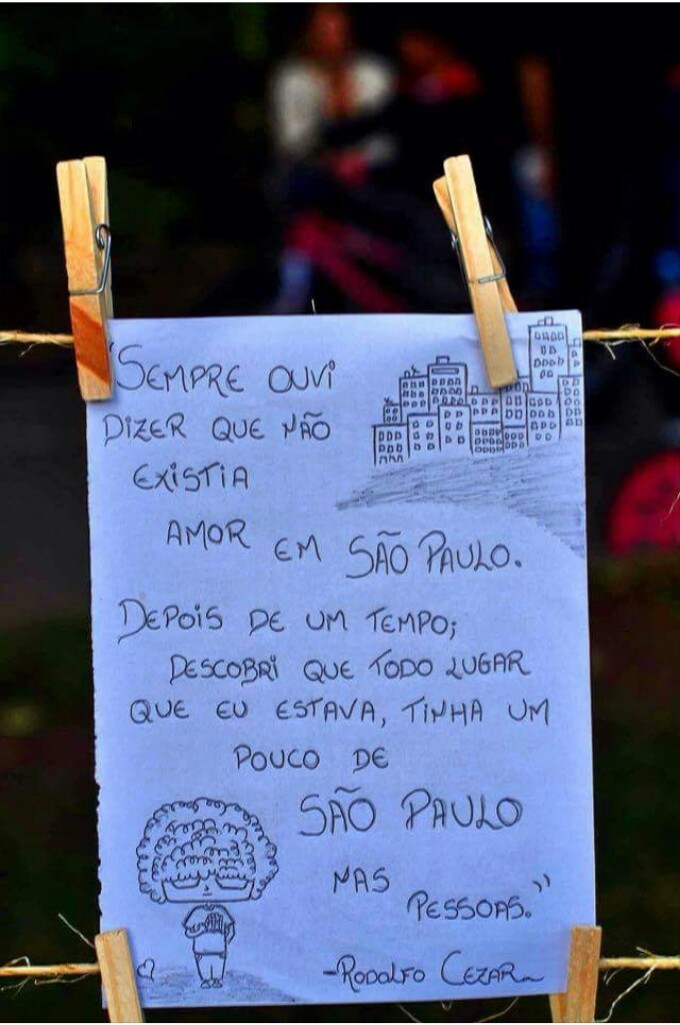 "SEMPRE OUVI
DIZER QUE NÃO
EXISTIA
AMOR EM SÃO PAULO.
DEPOIS DE UM TEMPO;
DESCOBRI QUE TODO LUGAR
QUE EU ESTAVA, TINHA UM
POUCO DE
SÃO PAULO
NAS PESSOAS."
-RODOLFO CEZAR